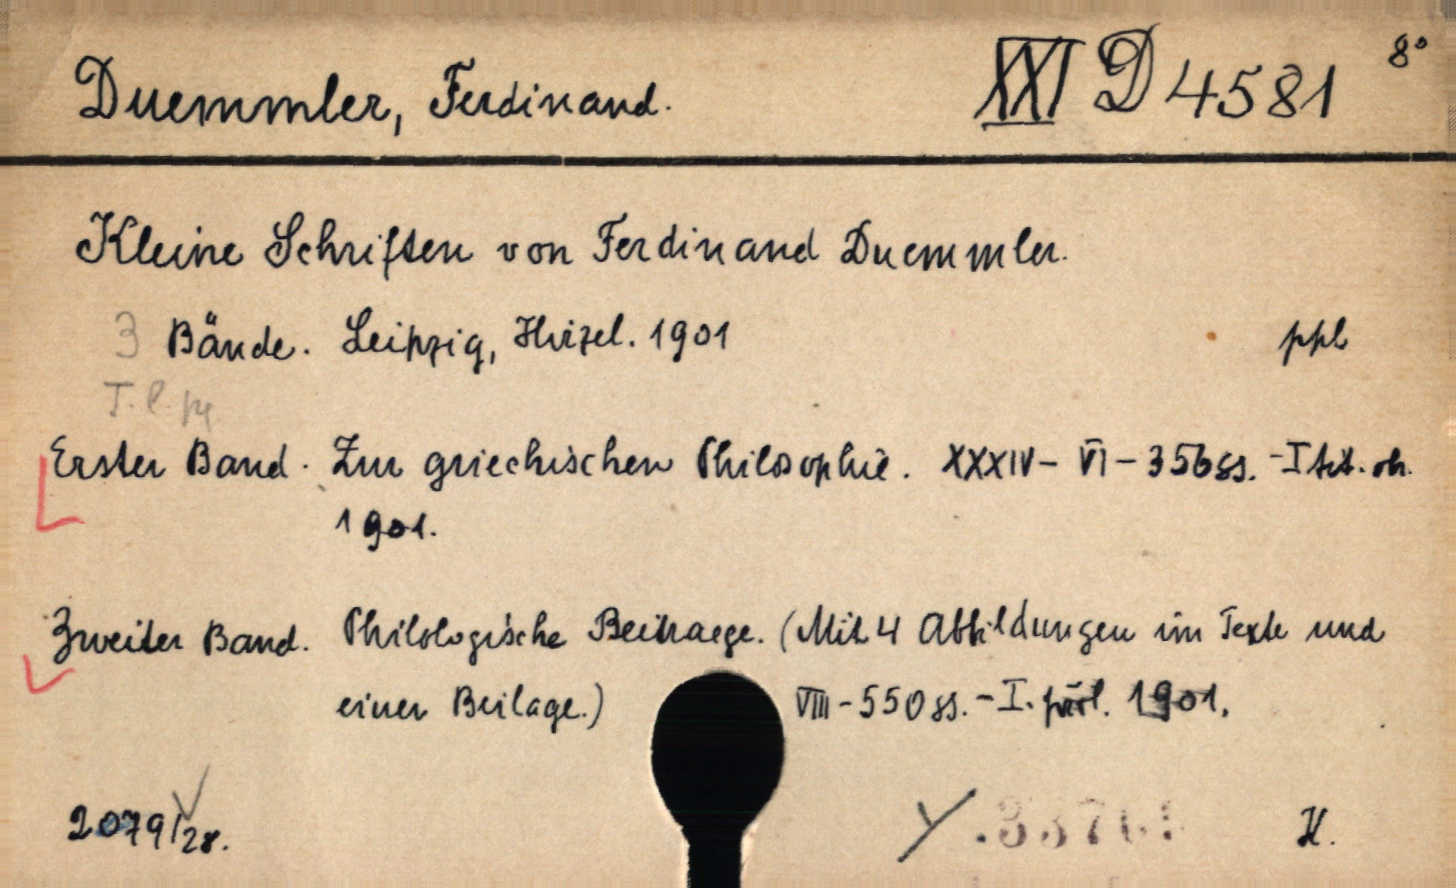 Duemmler, Ferdinand. XXI D 4581 8°
Kleine Schriften von Ferdinand Duemmler.
3 Bände. Leipzig, Hirzel. 1901 ppl
Erster Band. Zur griechischen Philosophie. XXXIV - VI - 356 ss. - I
1901.
Zweiter Band. Philologische Beitraege. (Mit 4 Abbildungen im Texte und
einer Beilage.) VIII - 550 ss. - I. 1901.
2079/28. H.